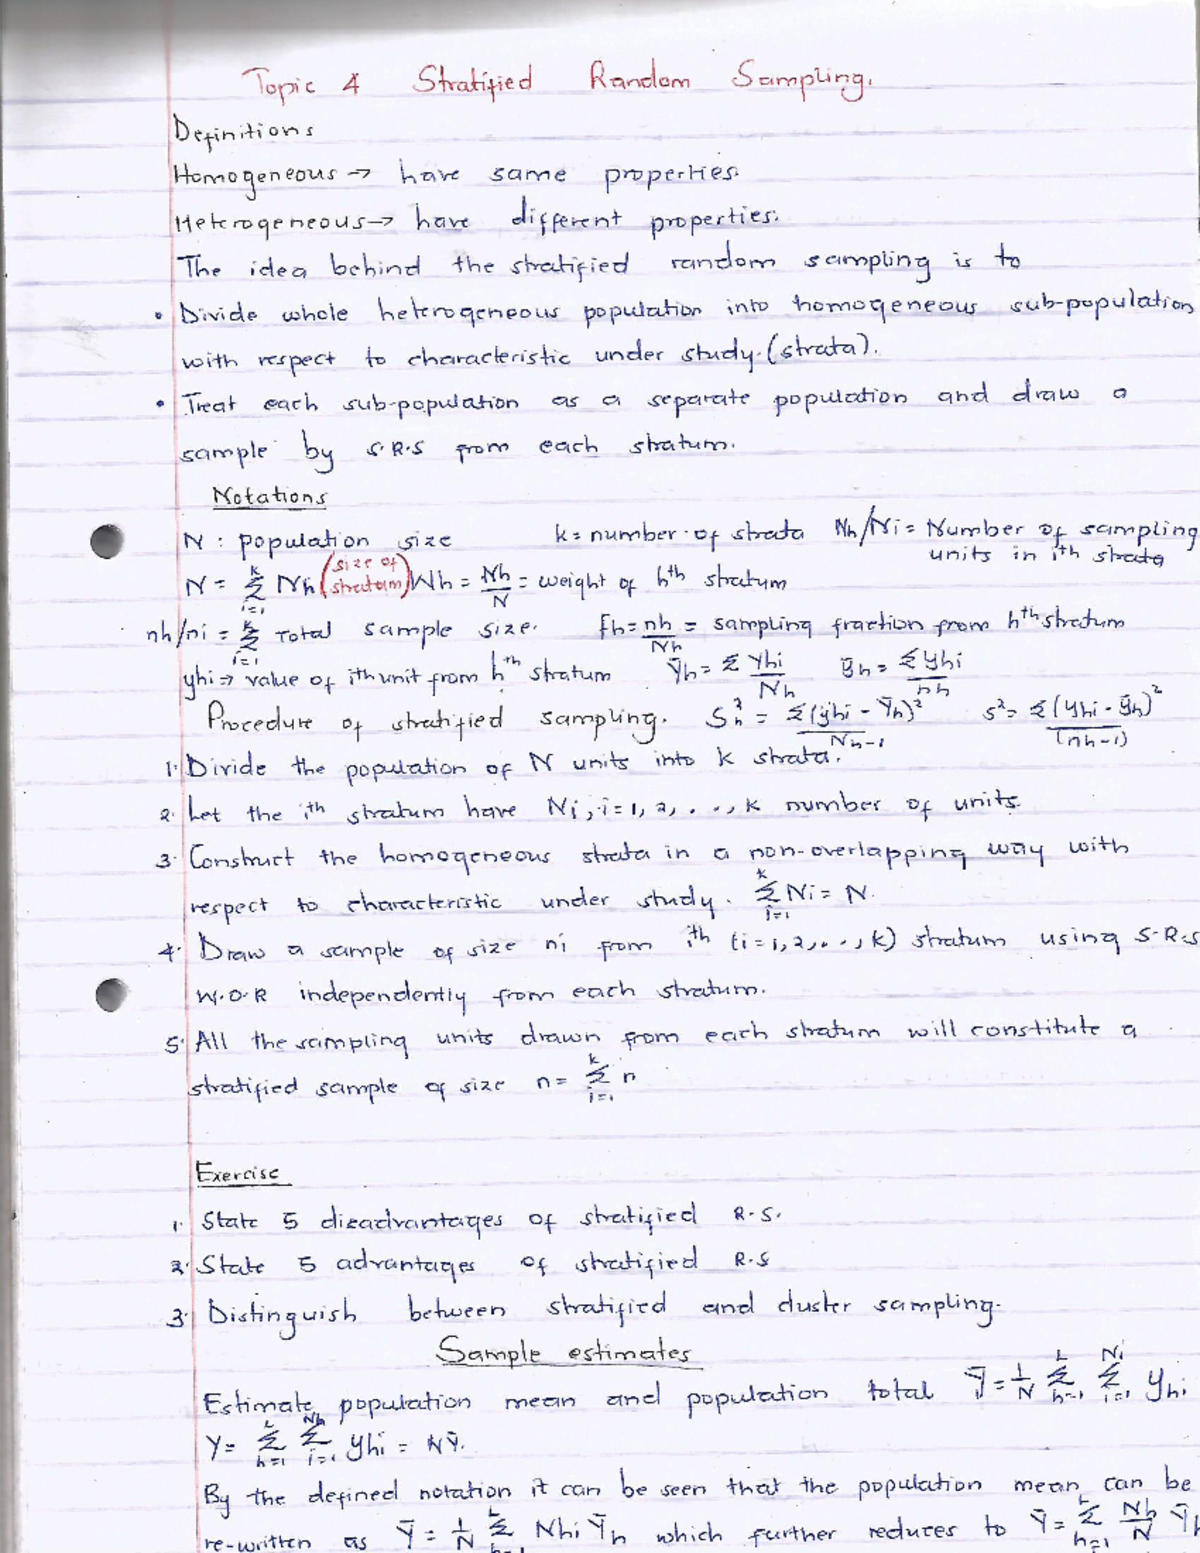 Topic 4 Stratified Random Sampling.
Definitions
Homogeneous → have same properties.
Heterogeneous → have different properties.
The idea behind the stratified random sampling is to
• Divide whole heterogeneous population into homogeneous sub-population
with respect to characteristic under study. (strata).
• Treat each sub-population as a separate population and draw a
sample by S.R.S from each stratum.
Notations
N : population size k = number of strata Nh/Ni = Number of sampling
units in ith strata
N = Σ_{i=1}^{k} Nh (size of stratum) Wh = Nh/N = weight of hth stratum
nh/ni = Σ_{i=1}^{k} Total sample size. fh = nh/Nh = sampling fraction from hth stratum
yhi → value of ith unit from hth stratum Ȳh = Σ Yhi/Nh ȳh = Σ yhi/nh
Procedure of stratified sampling. S²h = Σ(yhi - Ȳh)²/Nh-1 s² = Σ(yhi - ȳh)²/(nh-1)
1. Divide the population of N units into k strata.
2. Let the ith stratum have Ni, i = 1, 2, . . ., k number of units.
3. Construct the homogeneous strata in a non-overlapping way with
respect to characteristic under study. Σ_{i=1}^{k} Ni = N.
4. Draw a sample of size ni from ith (i = 1, 2, . . ., k) stratum using S.R.S
W.O.R independently from each stratum.
5. All the sampling units drawn from each stratum will constitute a
stratified sample of size n = Σ_{i=1}^{k} n
Exercise
1. State 5 disadvantages of stratified R.S.
2. State 5 advantages of stratified R.S
3. Distinguish between stratified and cluster sampling.
Sample estimates
Estimate population mean and population total Ȳ = 1/N Σ_{h=1}^{L} Σ_{i=1}^{Ni} yhi
Y = Σ_{h=1}^{L} Σ_{i=1}^{Nh} yhi = NȲ.
By the defined notation it can be seen that the population mean can be
re-written as Ȳ = 1/N Σ^{L} Nhi Ȳh which further reduces to Ȳ = Σ_{h=1}^{L} Nh/N Ȳh